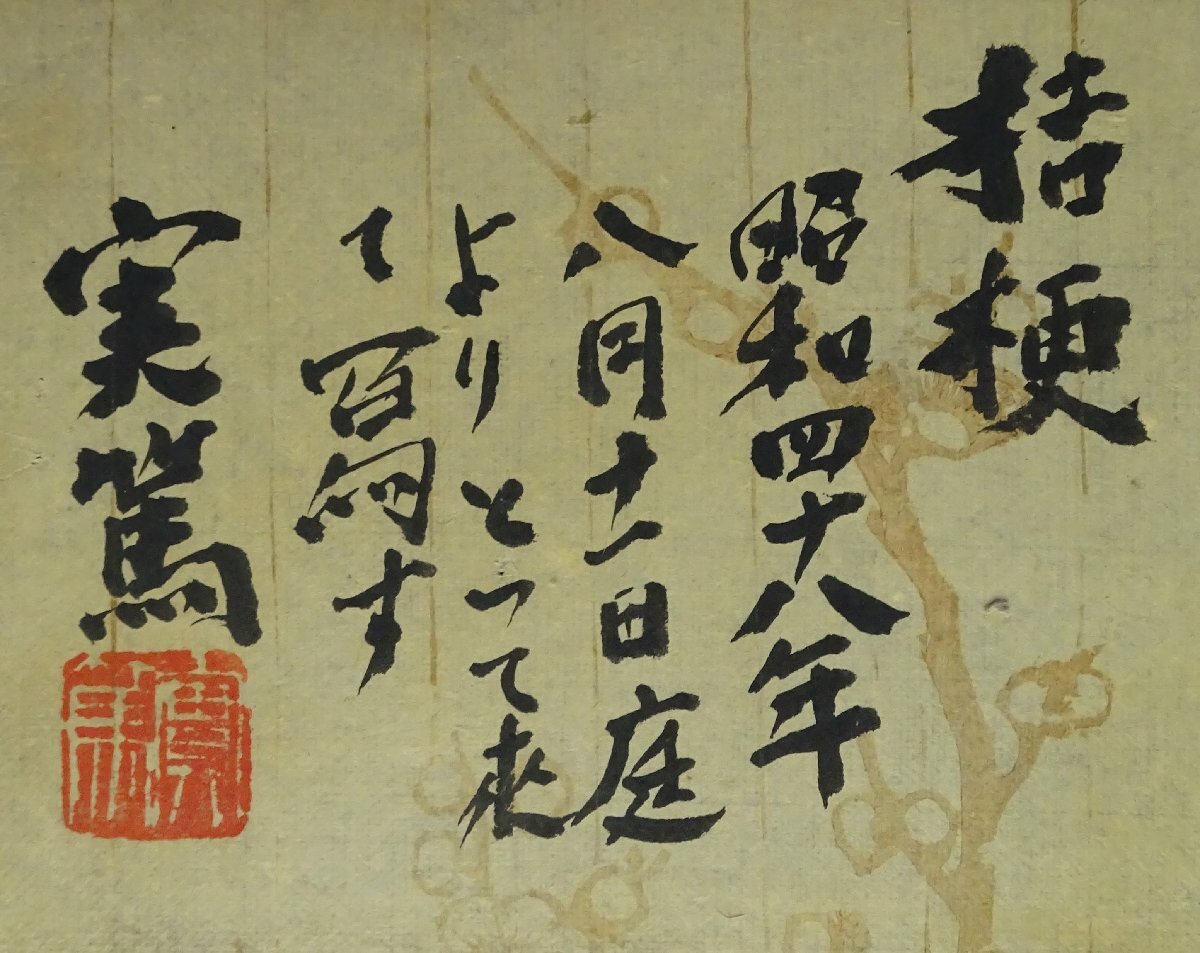 桔梗
昭和四十八年
八月十一日庭
よりとって来
て百 す
実篤